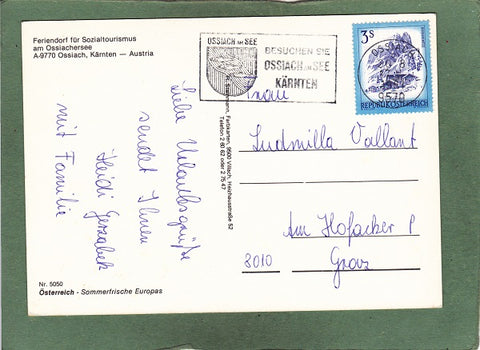 Feriendorf für Sozialtourismus
am Ossiachersee
A-9770 Ossiach, Kärnten — Austria
OSSIACH AM SEE
BESUCHEN SIE
OSSIACH AM SEE
KÄRNTEN
3 S
REPUBLIK ÖSTERREICH
OSSIACH
9570
Liebe Urlaubsgrüße
sendet Ihnen
Heidi
mit Familie
Farbkarten, 9500 Villach, Heizhausstraße 52
Telefon 2 80 62 oder 2 75 47
Frau
Ludmilla Vallant
Am Hofacker
8010 Graz
Nr. 5050
Österreich - Sommerfrische Europas